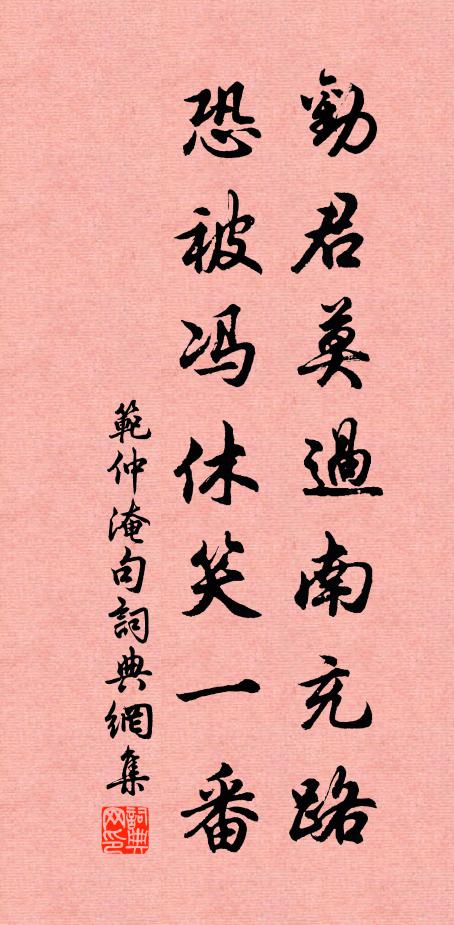 勸君莫過南充路
恐被冯休笑一番
範仲淹句詞典網集
詞典网印